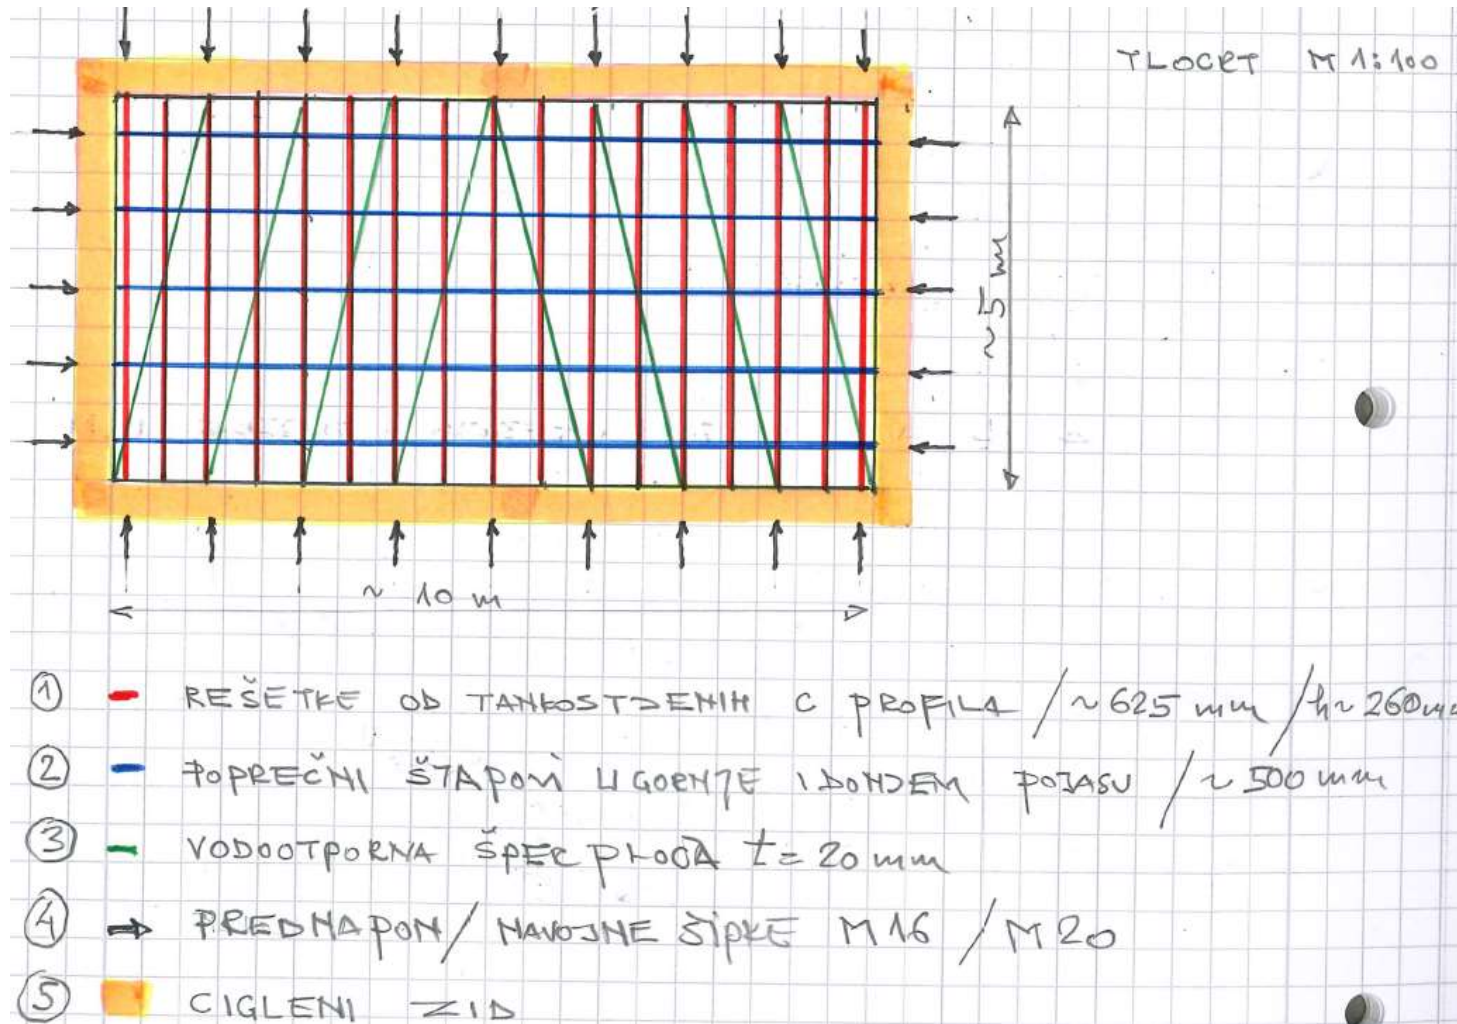 TLOCRT M 1:100
~5 m
~ 10 m
① REŠETKE OD TANKOSTJENIH C PROFILA / ~625 mm / h~ 260mm
② POPREČNI ŠTAPOVI U GORNJE I DONJEM POJASU / ~ 500 mm
③ VODOOTPORNA ŠPER PLOČA t = 20 mm
④ PREDNAPON / NAVOJNE ŠIPKE M16 / M20
⑤ CIGLENI ZID